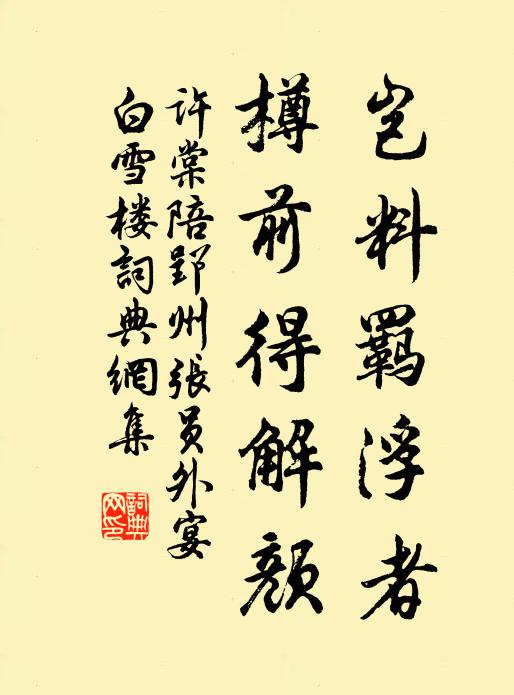 岂料羁浮者
樽前得解颜
许棠陪郢州张员外宴
白雪楼词典網集
詞典
网印